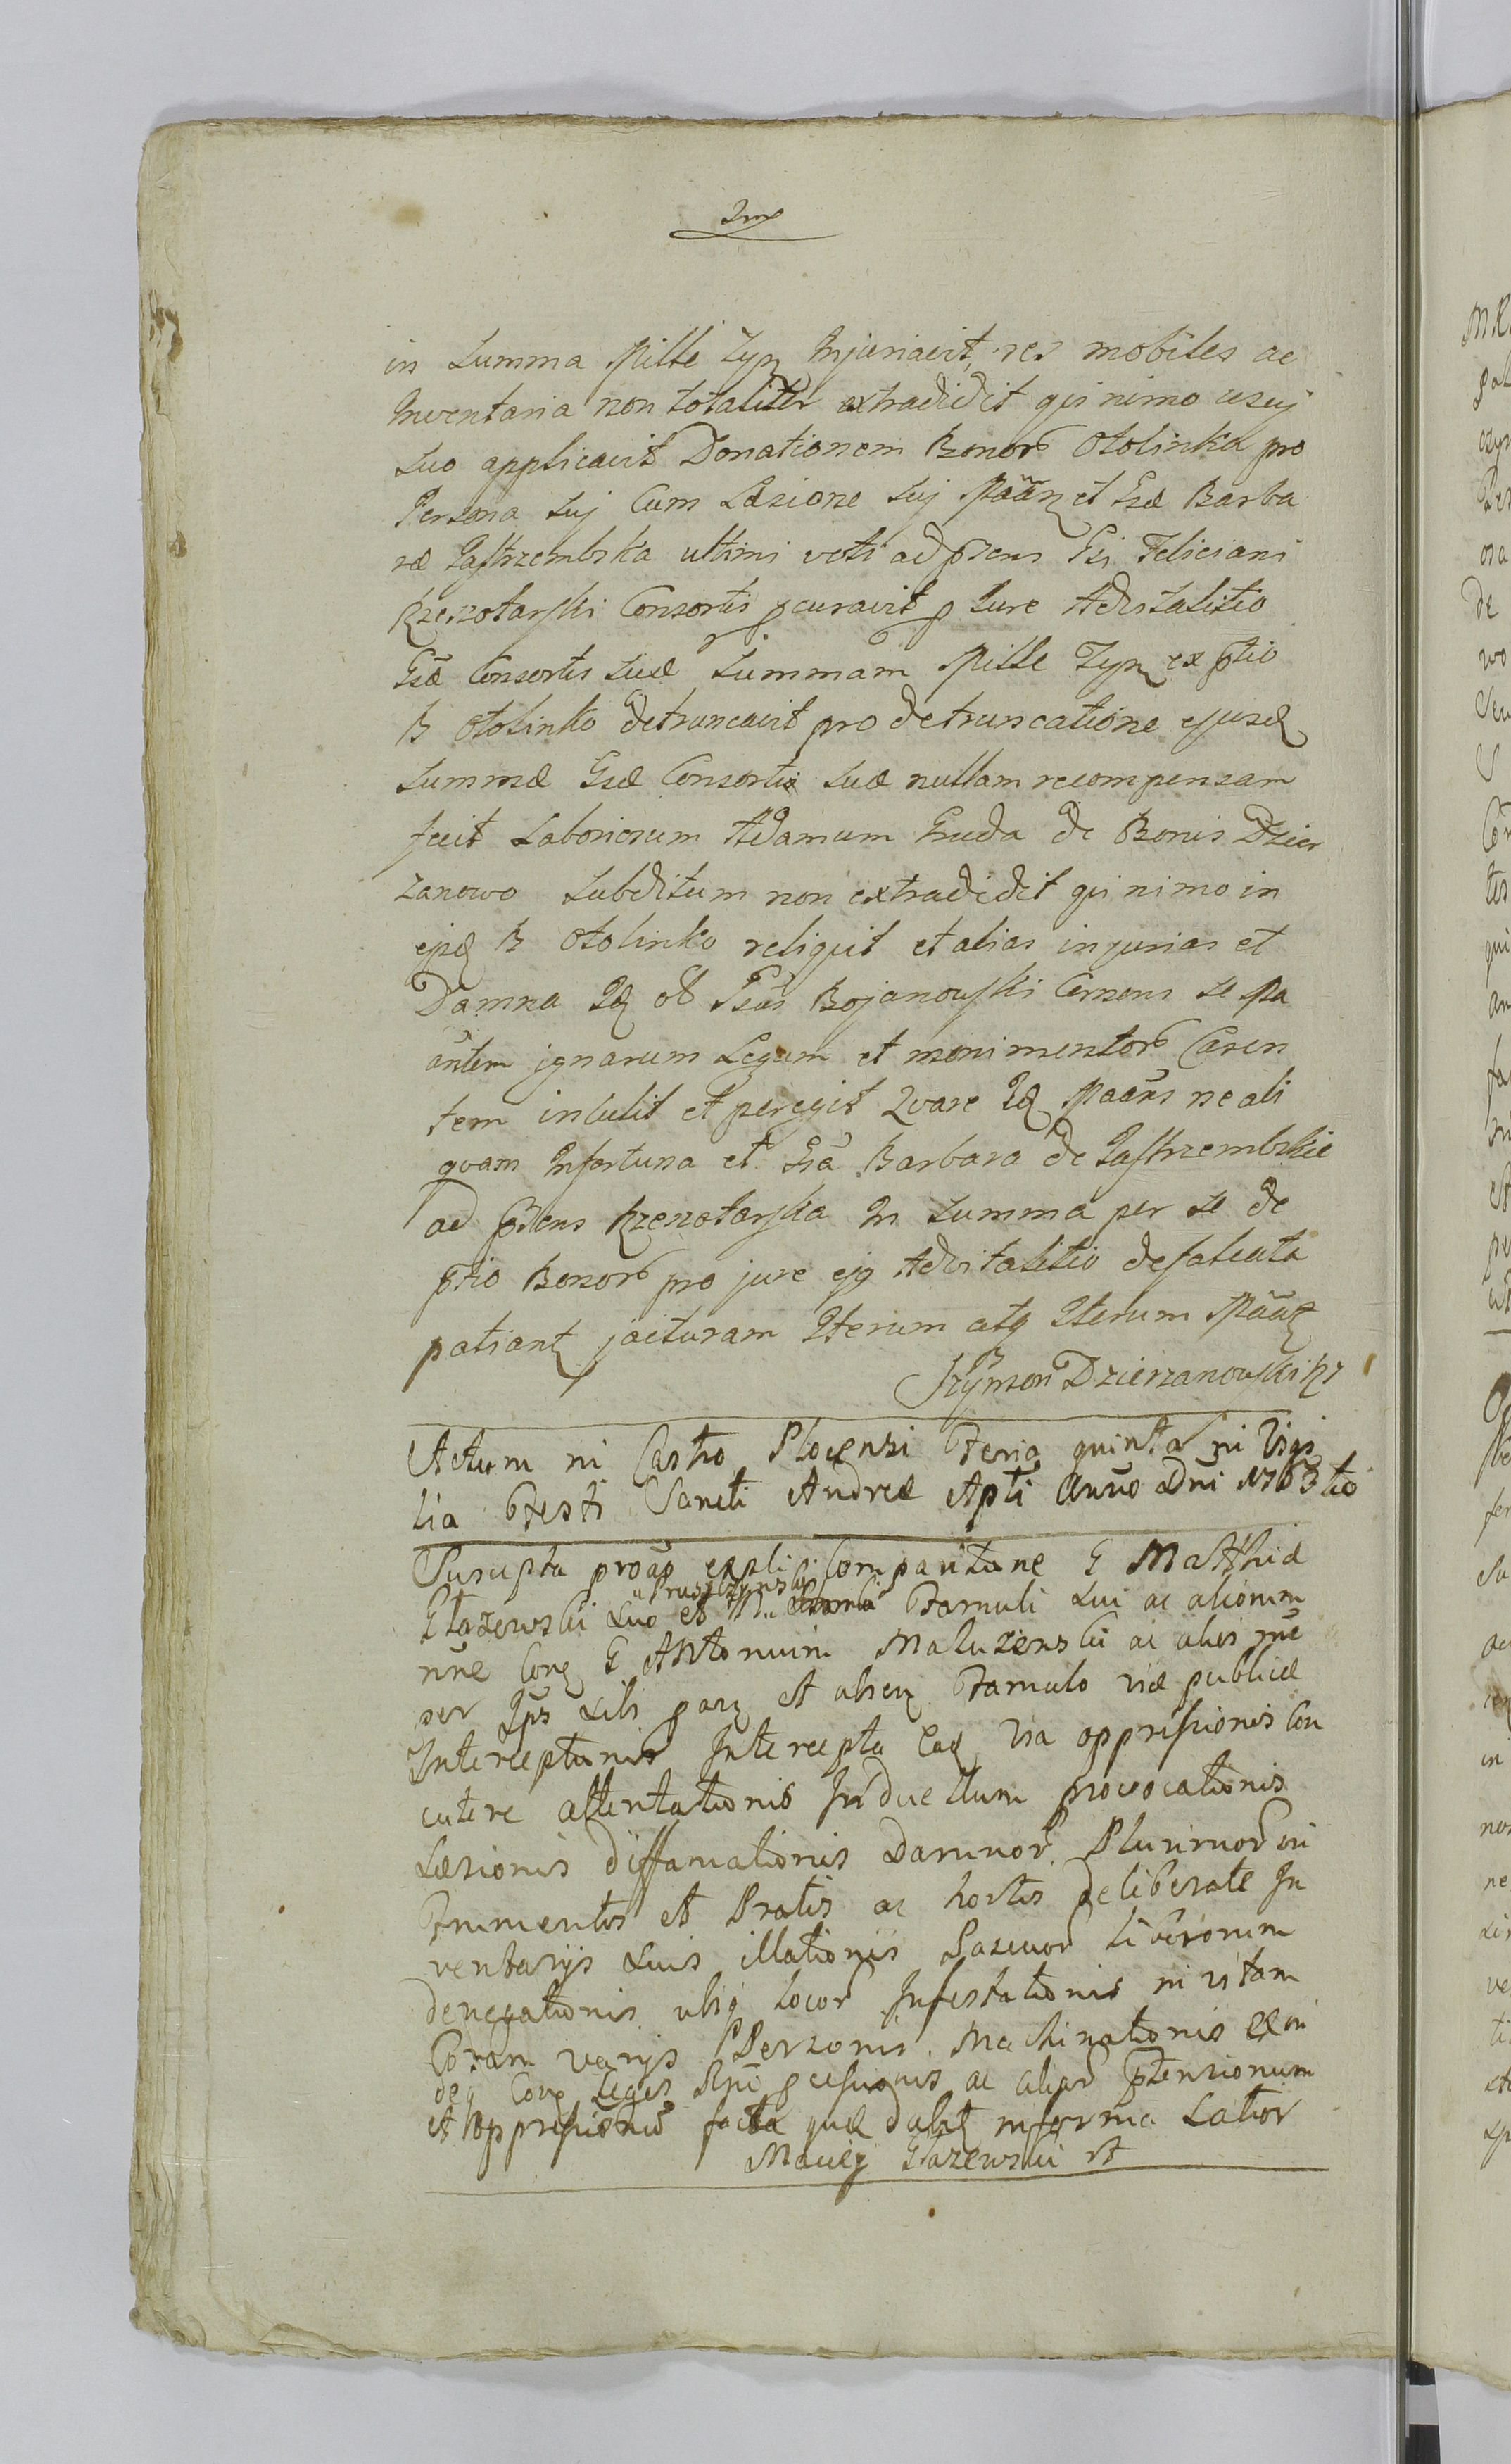 in Summa Mille Zyn Injuriavit, res mobiles ac
Inventaria non totaliter extradidit qvinimo usuj
suo applicavit Donationem Bonor Otolinka pro
Persona suj Cum Læsione suj Maãn et Gsæ Barba
ræ Jastrzembska ultimi voti ad psens Gsi Feliciani
Krzenotarski Consortis pcuravit p Jure Advitalitio
Gsæ Consortis suæ Summam Mille Zyn ex ptio
B Otolinko detruncavit pro detruncatione ejusd
Summæ Gsæ Consortis suæ nullam recompensam
fecit Laboriosum Adamum Gruda de Bonis Dzier
zanowo Subditum non extradidit qvinimo in
ejsd B Otolinko reliquit et alias injurias et
Damna Id ol Gsus Bojanowski Cernens se Ma
antem ignarum Legum et monimentor Caren
tem intulit et peregit Qvare Id Maãns ne ali
qvam Infortuna et Gsa Barbara de Jastrzembskie
ad psens Krzenotarska In Summa per se de
ptio Bonor pro jure ejq Advitalitio defalcata
patiant jacturam Iterum atq Iterum Mãat
Szymon Dzierzanowski
Actum in Castro Plocensi Feria quinta in Vigi
lia Festi Sancti Andreæ Apti Anno Dni 1763tio
Suscepta proãs expli: Comparitione G Matthiæ
Pruszczynski
Głazewski Suo et N Famuli sui ac aliorum
nne Con G Antonium Maluzenski ac alios
ser Ips sibi par et alien Famulo viæ publicæ
Interceptionis Intercepta Ead via oppressionis Con
cutere attentationis In duellum provocationis
Læsionis diffamationis Damnor Plurimor in
Frumentis et Pratis ac hortis deliberate In
ventarijs suis illationis Pascuor liberorum
denegationis ubiq locor Infestationis in vitam
Coram varijs Personis Machinationis exin
deq Con Leges Rni pcessionis ac aliar ptensionum
et oppressionu facta quæ dabit informa Lator
Maciej Głazewski